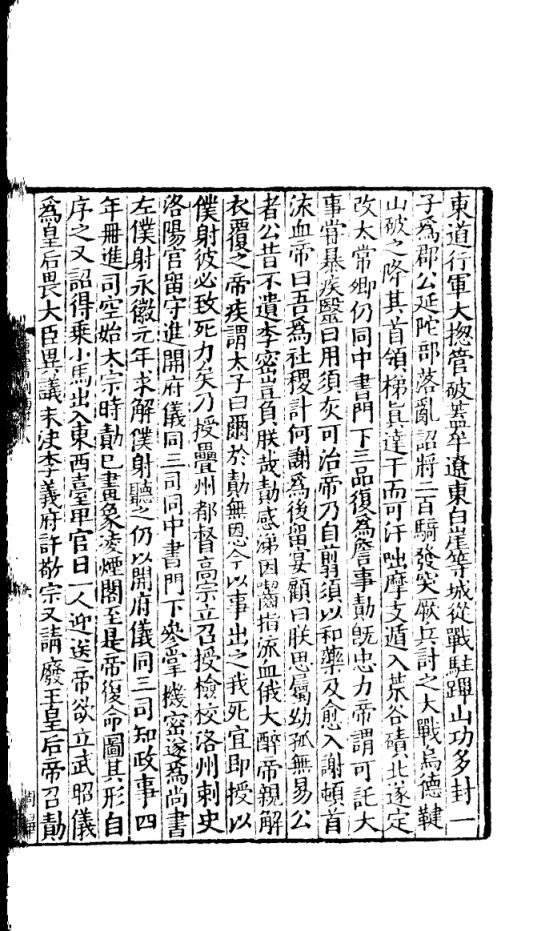 東道行軍大揔管破蓋牟遼東白崖等城從戰駐蹕山功多封一
子爲郡公延陀部落亂詔將二百騎發突厥兵討之大戰烏德鞬
山破之降其首領梯眞達干而可汗咄摩支遁入荒谷磧北遂定
改太常卿仍同中書門下三品復爲詹事勣旣忠力帝謂可託大
事甞暴疾醫曰用須灰可治帝乃自翦須以和藥及愈入謝頓首
流血帝曰吾爲社稷計何謝爲後留宴顧曰朕思屬幼孤無易公
者公昔不遺李密豈負朕哉勣感涕因嚙指流血俄大醉帝親解
衣覆之帝疾謂太子曰爾於勣無恩今以事出之我死宜即授以
僕射彼必致死力矣乃授疊州都督高宗立召授檢校洛州刺史
洛陽宮留守進開府儀同三司同中書門下參掌機密遂爲尚書
左僕射永徽元年求解僕射聽之仍以開府儀同三司知政事四
年冊進司空始太宗時勣已畫象凌煙閣至是帝復命圖其形自
序之又詔得乘小馬出入東西臺卑官日一人迎送帝欲立武昭儀
爲皇后畏大臣異議未決李義府許敬宗又請廢王皇后帝召勣